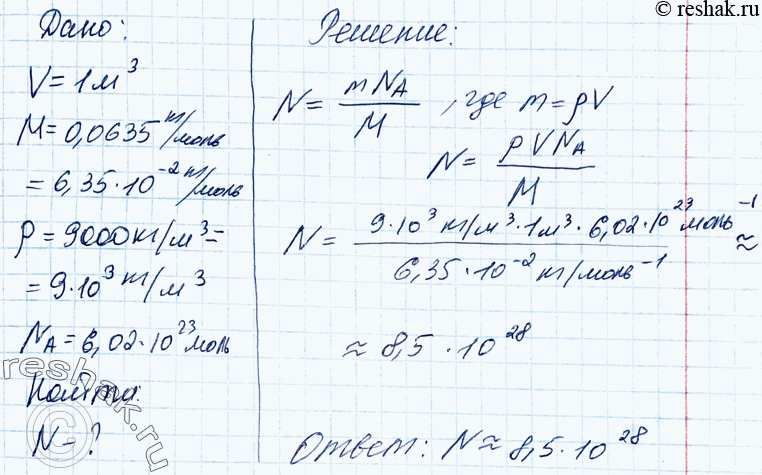 © reshak.ru
Дано:
V = 1 м³
M = 0,0635 кг/моль
= 6,35·10⁻² кг/моль
ρ = 9000 кг/м³ =
= 9·10³ кг/м³
N_A = 6,02·10²³ моль
Найти:
N - ?
Решение:
N = mN_A / M , где m = ρV
N = ρVN_A / M
N = 9·10³ кг/м³ · 1м³ · 6,02·10²³ моль⁻¹ / 6,35·10⁻² кг/моль⁻¹ ≈
≈ 8,5 · 10²⁸
Ответ: N ≈ 8,5·10²⁸
reshak.ru